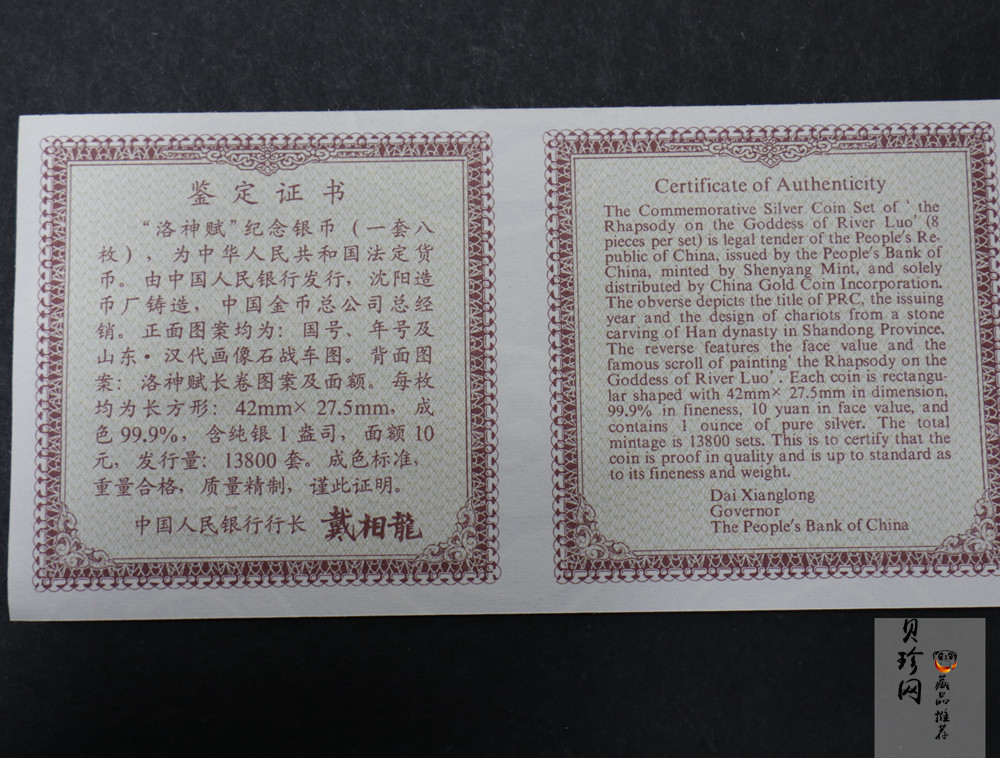 鉴定证书
“洛神赋”纪念银币（一套八
枚），为中华人民共和国法定货
币。由中国人民银行发行，沈阳造
币厂铸造，中国金币总公司总经
销。正面图案均为：国号、年号及
山东·汉代画像石战车图。背面图
案：洛神赋长卷图案及面额。每枚
均为长方形：42mm×27.5mm，成
色99.9%，含纯银1盎司，面额10
元，发行量：13800套。成色标准，
重量合格，质量精制，谨此证明。
中国人民银行行长 戴相龍
Certificate of Authenticity
The Commemorative Silver Coin Set of ' the
Rhapsody on the Goddess of River Luo' (8
pieces per set) is legal tender of the People's Re-
public of China, issued by the People's Bank of
China, minted by Shenyang Mint, and solely
distributed by China Gold Coin Incorporation.
The obverse depicts the title of PRC, the issuing
year and the design of chariots from a stone
carving of Han dynasty in Shandong Province.
The reverse features the face value and the
famous scroll of painting' the Rhapsody on the
Goddess of River Luo' . Each coin is rectangu-
lar shaped with 42mm× 27.5mm in dimension,
99.9% in fineness, 10 yuan in face value, and
contains 1 ounce of pure silver. The total
mintage is 13800 sets. This is to certify that the
coin is proof in quality and is up to standard as
to its fineness and weight.
Dai Xianglong
Governor
The People's Bank of China
贝珍网
藏品推荐